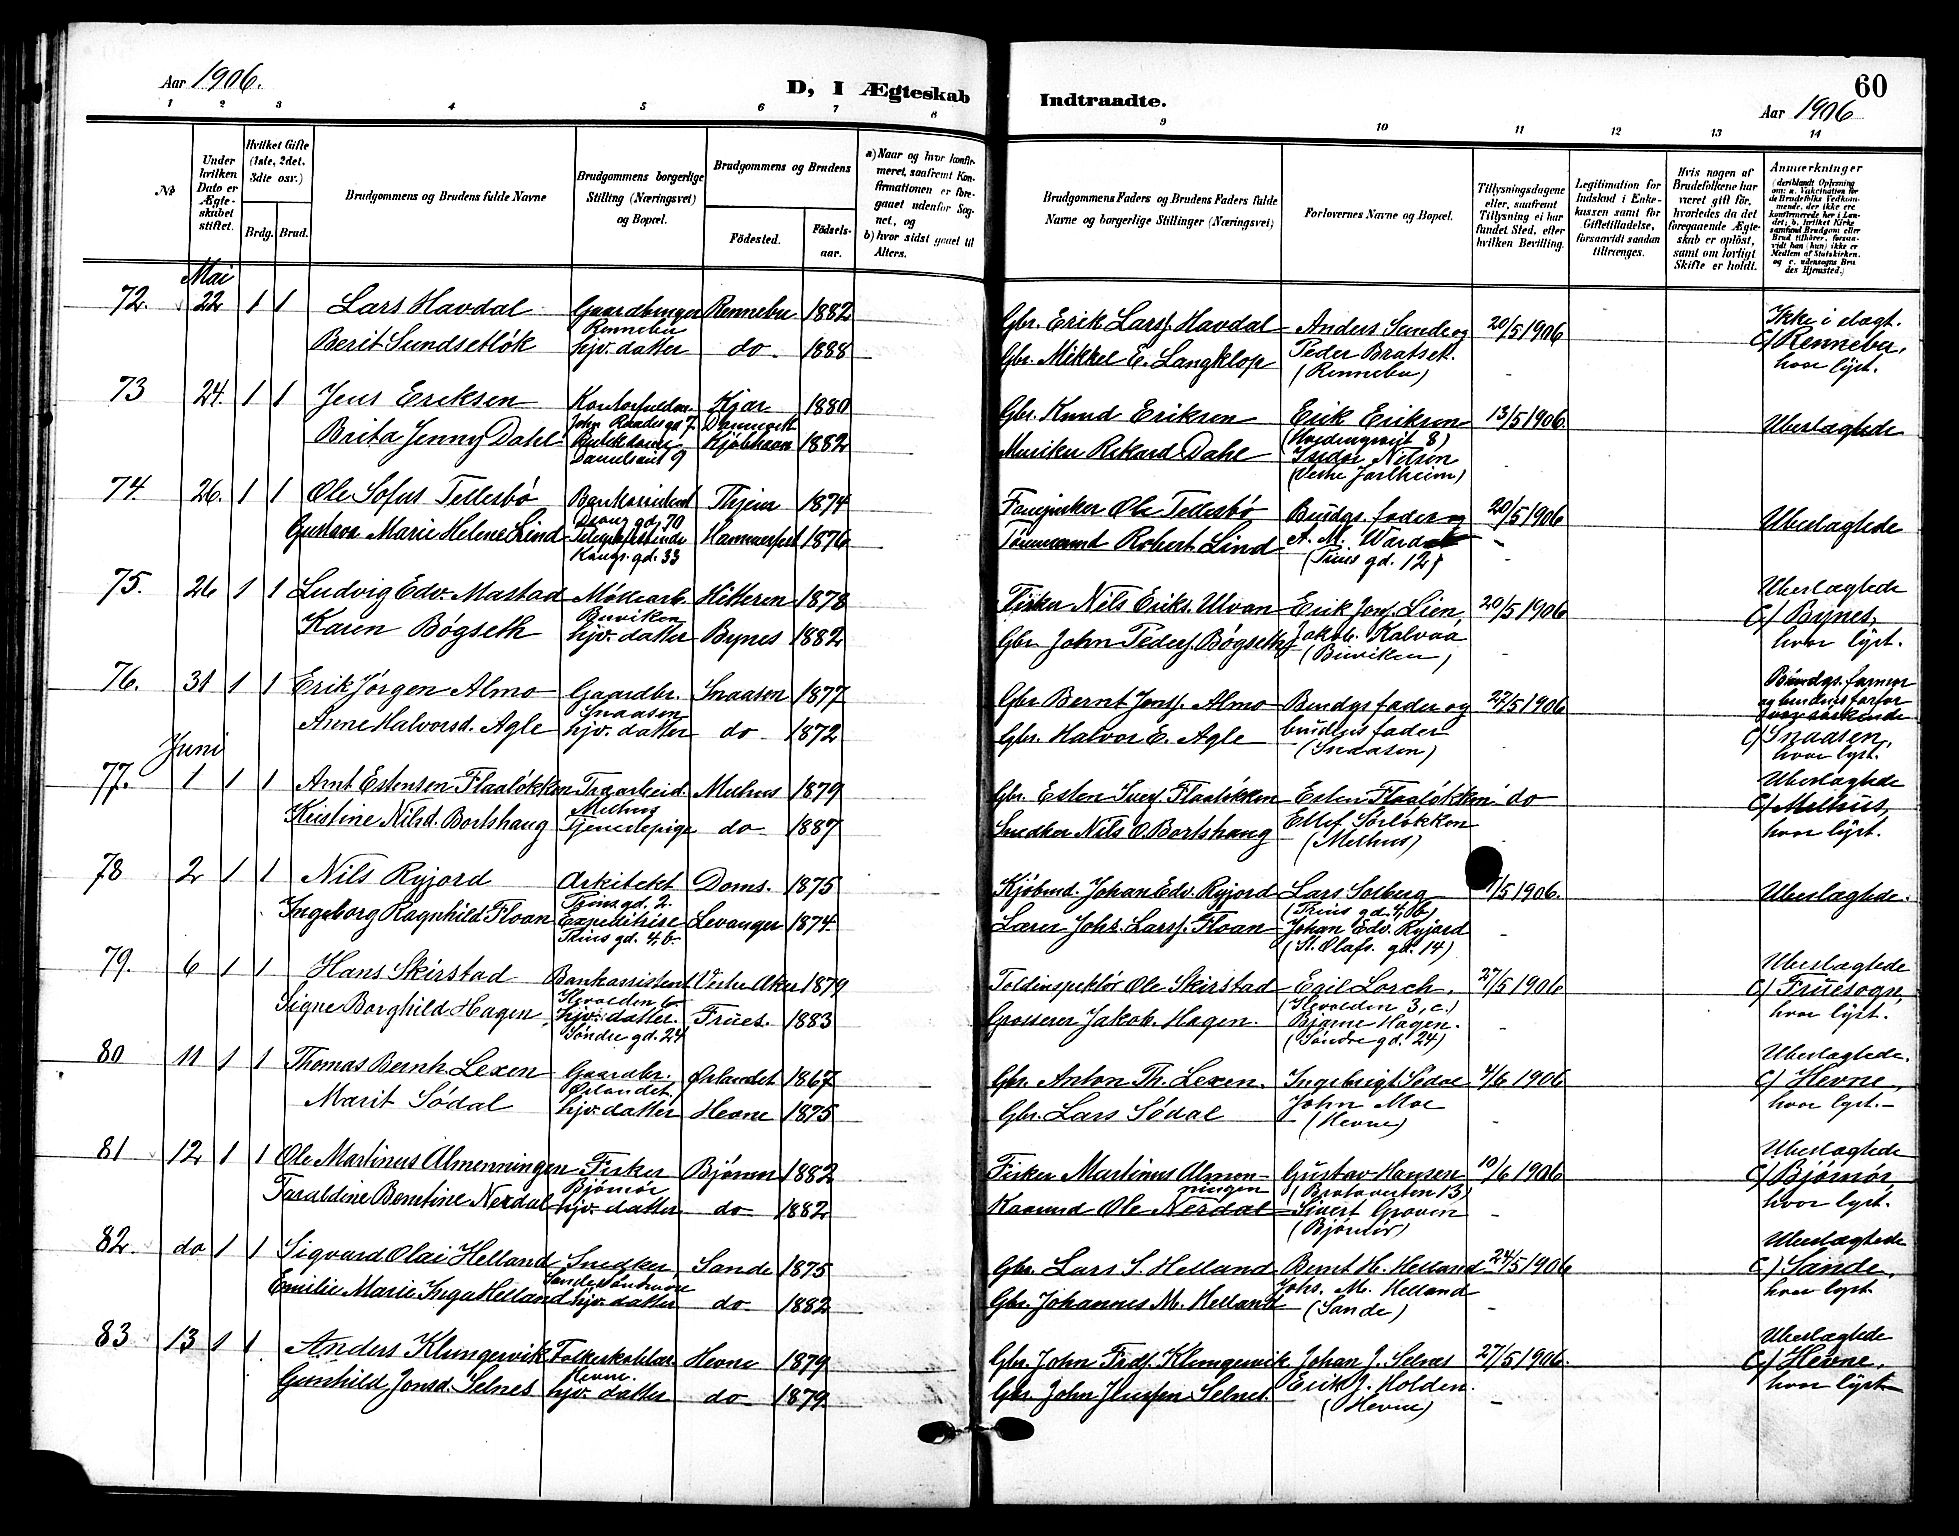 Aar 1906.
D, I Ægteskab Indtraadte.
60
Aar 1906
1 2 3 4 5 6 7 8 9 10 11 12 13 14
№
Under hvilken Dato er Ægteskabet stiftet.
Hvilket Gifte (1ste, 2det, 3die osv.)
Brdg. Brud.
Brudgommens og Brudens fulde Navne
Brudgommens borgerlige Stilling (Næringsvei) og Bopæl.
Brudgommens og Brudens
Fødested.
Fødselsaar.
a) Naar og hvor konfirmeret, saafremt Konfirmationen er foregaaet udenfor Sognet, og
b) hvor sidst gaaet til Alters.
Brudgommens Faders og Brudens Faders fulde Navne og borgerlige Stillinger (Næringsvei)
Forlovernes Navne og Bopæl.
Tillysningsdagene eller, saafremt Tillysning ei har fundet Sted, efter hvilken Bevilling.
Legitimation for Indskud i Enkekassen samt for Giftetilladelse, forsaavidt saadan tiltrænges.
Hvis nogen af Brudefolkene har været gift før, hvorledes da det foregaaende Ægteskab er opløst, samt om lovligt Skifte er holdt.
Anmærkninger
(deriblandt Oplysning om: a. Vakcination for de Brudefolks Vedkommende, der ikke ere konfirmerede her i Landet; b. hvilket Kirkesamfund Brudgom eller Brud tilhører, forsaavidt han (hun) ikke er Medlem af Statskirken, og c. udensogns Brudes Hjemsted.)
Mai
72. 22 1 1 Lars Havdal Gaardbruger Rennebu 1882 Gbr. Erik Larss. Havdal Anders Sunde og 20/5 1906 Ikke i slægt.
Rennebu
Berit Sundsetløk hjv. datter do. 1888 Gbr. Mikkel E. Langklop Peder Bratset. c) Rennebu,
(Rennebu) - hvor lyst.
73 24. 1 1 Jens Eriksen Kjær 1880 Gbr. Knud Eriksen Erik Eriksen 13/5 1906. Ubeslægtede
Danmark
Brita Jenny Dahl 1882 Musiker Rikard Dahl Isidor Nilsen
-
74 26. 1 1 Ole Sofus Tellesbø 1874 Ole Tellesbø Brudgs. fader og 20/5 1906 Ubeslægtede
Gustava Marie Helene Lind Hammerfest 1876 Robert Lind A. M.
Kongs. gd. 33 (Prins gd. 12) -
75. 26 1 1 Ludvig Edv. Mastad Hitteren 1878 Fisker Nils Eriks. Ulvan Erik Jons. Lien, 20/5 1906 Ubeslægtede
Buviken c) Bynes,
Karen Bøgseth hjv. datter Bynes 1882 Gbr. John Peders. Bøgseth Jakob. Kalvaa hvor lyst.
(Buviken) -
76. 31 1 1 Erik Jørgen Almo Gaardbr. Snaasen 1877 Gbr. Bernt Jonss. Almo Brudgs fader og 27/5 1906 Brudgs. farmor
Snaasen og brudens farfor
Anne Halvorsd. Agle hjv. datter do 1872 Gbr. Halvor E. Agle brudens fader c) Snaasen,
(Snaasen) - hvor lyst.
Juni
77. 1 1 1 Arnt Estensen Flaaløkken Melhus 1879 Gbr. Esten Flaaløkken Esten Flaaløkken do Ubeslægtede
Melhus c) Melhus,
Kristine Nilsd. Bortshaug Tjenestepige do 1887 Snedker Nils O. Bortshaug Ellef Sørløkken hvor lyst.
(Melhus) -
78 2 1 1 Nils Ryjord Arkitekt Doms. 1875 Kjøbmd. Johan Edv. Ryjord Lars Solberg /5 1906. Ubeslægtede.
Prins gd. 2. (Prins gd. 4, b)
Ingeborg Ragnhild Floan Expeditrise Levanger 1874. Lærer Johs. Larss. Floan Johan Edv. Ryjord
Prins gd. 4, b. (St. Olafs. gd. 14) -
79. 6 1 1 Hans Skirstad Bankassistent Vestre Aker 1879 Toldinspektør Ole Skirstad Egil Lorch. 27/5 1906 Ubeslægtede
(Ilevolden 3, c.) c) Fruesogn,
Signe Borghild Hagen hjv. datter. Frues. 1883 Grosserer Jakob. Hagen. Bjarne Hagen. hvor lyst.
Søndre gd. 24 (Søndre gd. 24) -
80 11 1 1 Thomas Bernh. Lexen Gaardbr. Ørlandet 1867 Gbr. Anton Th. Lexen. Ingebrigt Sødal 4/6 1906 Ubeslægtede.
Ørlandet c) Hevne,
Marit Sødal hjv. datter Hevne 1875 Gbr. Lars Sødal John Moe hvor lyst.-
(Hevne) -
81 12 1 1 Ole Martinus Almenningen Fisker Bjørnør 1882 Fisker Martinus Almenningen Gustav Hansen 10/6 1906 Ubeslægtede
Bjørnør c) Bjørnør,
Taraldine Berntine Nerdal hjv. datter do 1882 Kaarmd Ole Nerdal Sivert Groven hvor lyst.
(Bjørnør) -
82. do 1 1 Sigvard Olai Helland Snedker Sande 1875 Gbr. Lars S. Helland Bernt H. Helland 24/5 1906 Ubeslægtede
c) Sande,
Emilie Marie Inga Helland hjv. datter do 1882 Gbr. Johannes M. Helland Johs. M. Helland hvor lyst.
(Sande) -
83 13 1 1 Anders Klungervik Hevne 1879 Gbr. John Klungervik Johan J. Selnes 27/5 1906. Ubeslægtede
Hevne. c) Hevne,
Gunhild Jonsd. Selnes hjv. datter do 1879 Gbr. John Selnes. Erik J. Holden. hvor lyst
(Hevne) -